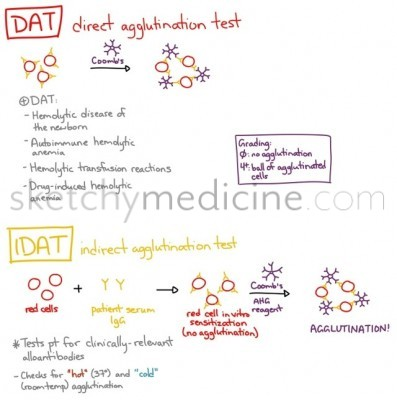 DAT direct agglutination test
Coomb's
⊕DAT:
- Hemolytic disease of
the newborn
- Autoimmune hemolytic
anemia
- Hemolytic transfusion reactions
- Drug-induced hemolytic
anemia
Grading:
∅: no agglutination
4+: ball of agglutinated
cells
sketchymedicine.com
IDAT indirect agglutination test
red cells
+
patient serum
IgG
red cell in vitro
sensitization
(no agglutination)
Coomb's
AHG
reagent
AGGLUTINATION!
* Tests pt for clinically-relevant
alloantibodies
- Checks for "hot" (37°) and "cold"
(room temp) agglutination